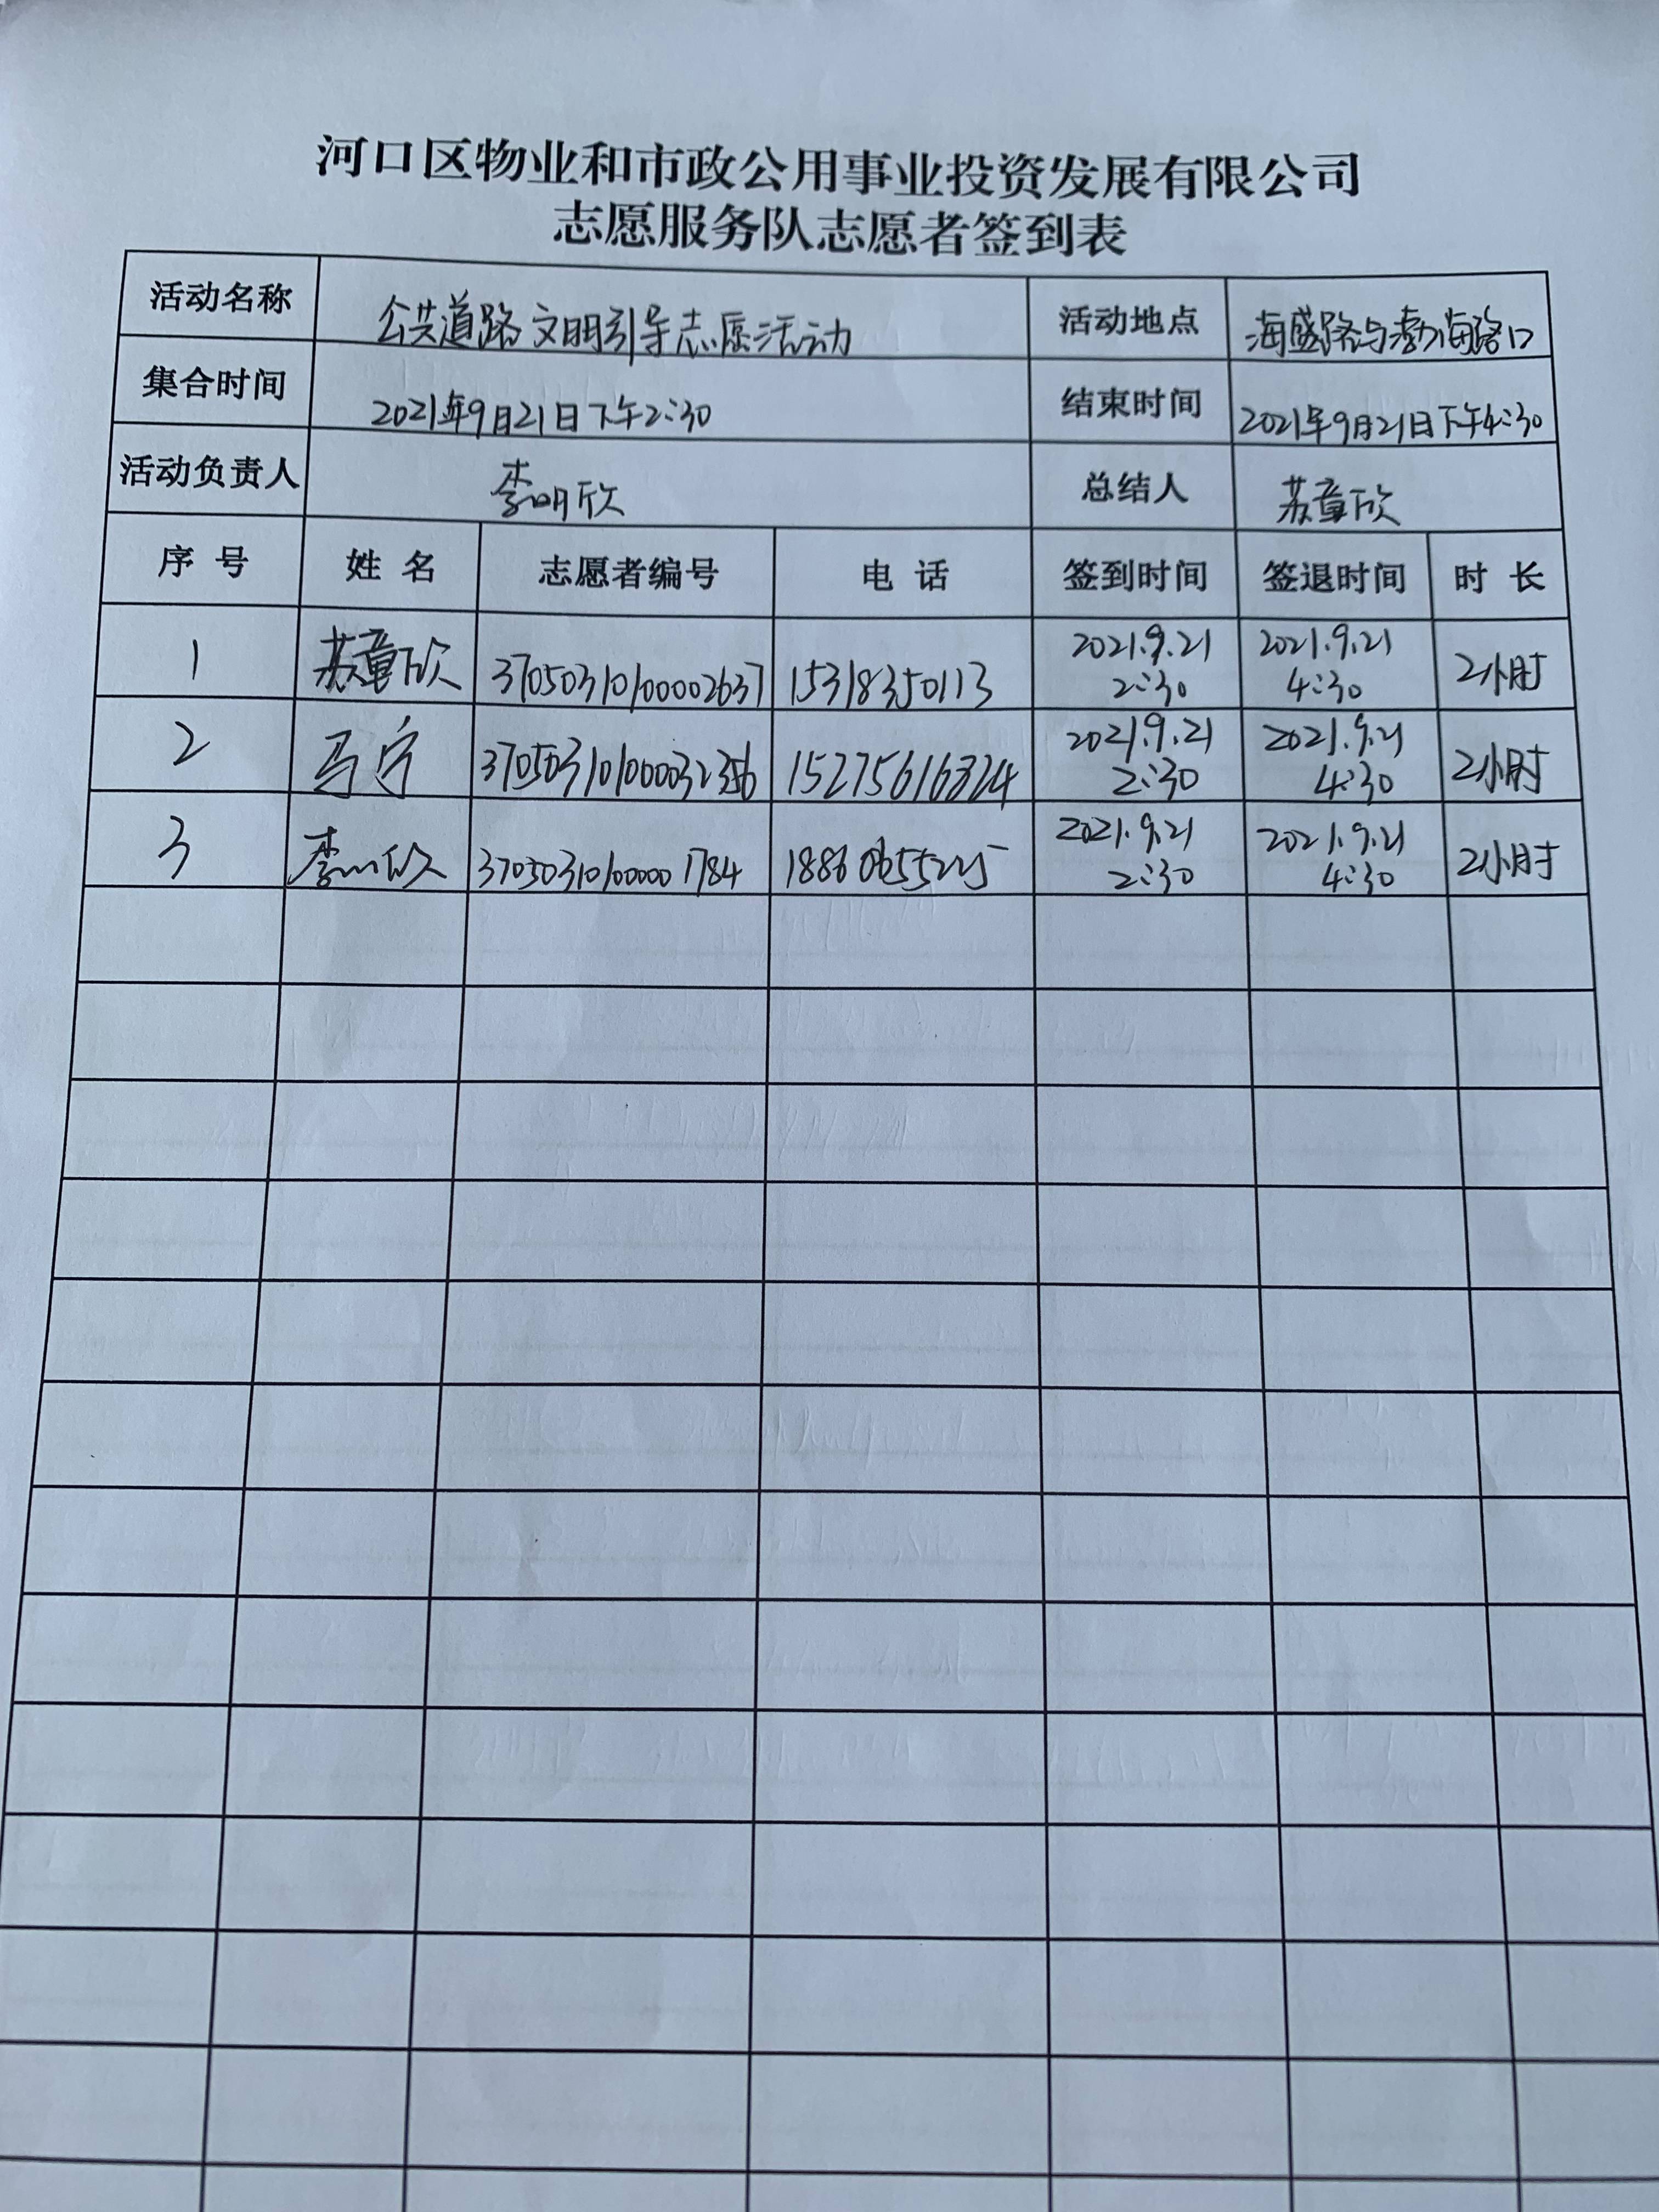 河口区物业和市政公用事业投资发展有限公司
志愿服务队志愿者签到表
活动名称 公共道路文明引导志愿活动 活动地点 海盛路与渤海路口
集合时间 2021年9月21日下午2:30 结束时间 2021年9月21日下午4:30
活动负责人 李明欣 总结人 苏章欣
序 号 姓 名 志愿者编号 电 话 签到时间 签退时间 时 长
1 苏章欣 37050310100002637 15318350113 2021.9.21 2:30 2021.9.21 4:30 2小时
2 马宁 15275616324 2021.9.21 2:30 2021.9.21 4:30 2小时
3 李明欣 370503101000001784 2021.9.21 2:30 2021.9.21 4:30 2小时